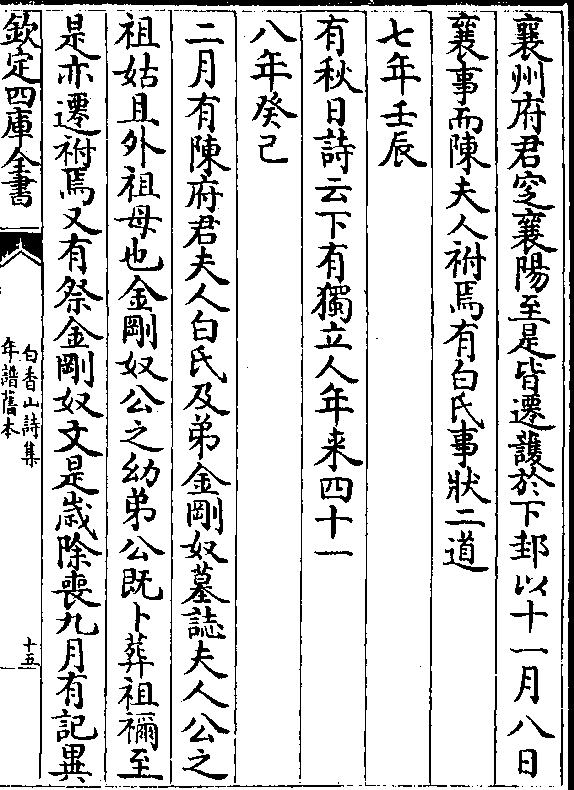 襄州府君窆襄陽至是皆遷護於下邽以十一月八日
襄事而陳夫人祔焉有白氏事狀二道
七年壬辰
有秋日詩云下有獨立人年来四十一
八年癸已
二月有陳府君夫人白氏及弟金剛奴墓誌夫人公之
祖姑且外祖母也金剛奴公之幼弟公既卜葬祖禰至
是亦遷祔焉又有祭金剛奴文是歲除喪九月有記異
欽定四庫全書
白香山詩集
年譜舊本
十五